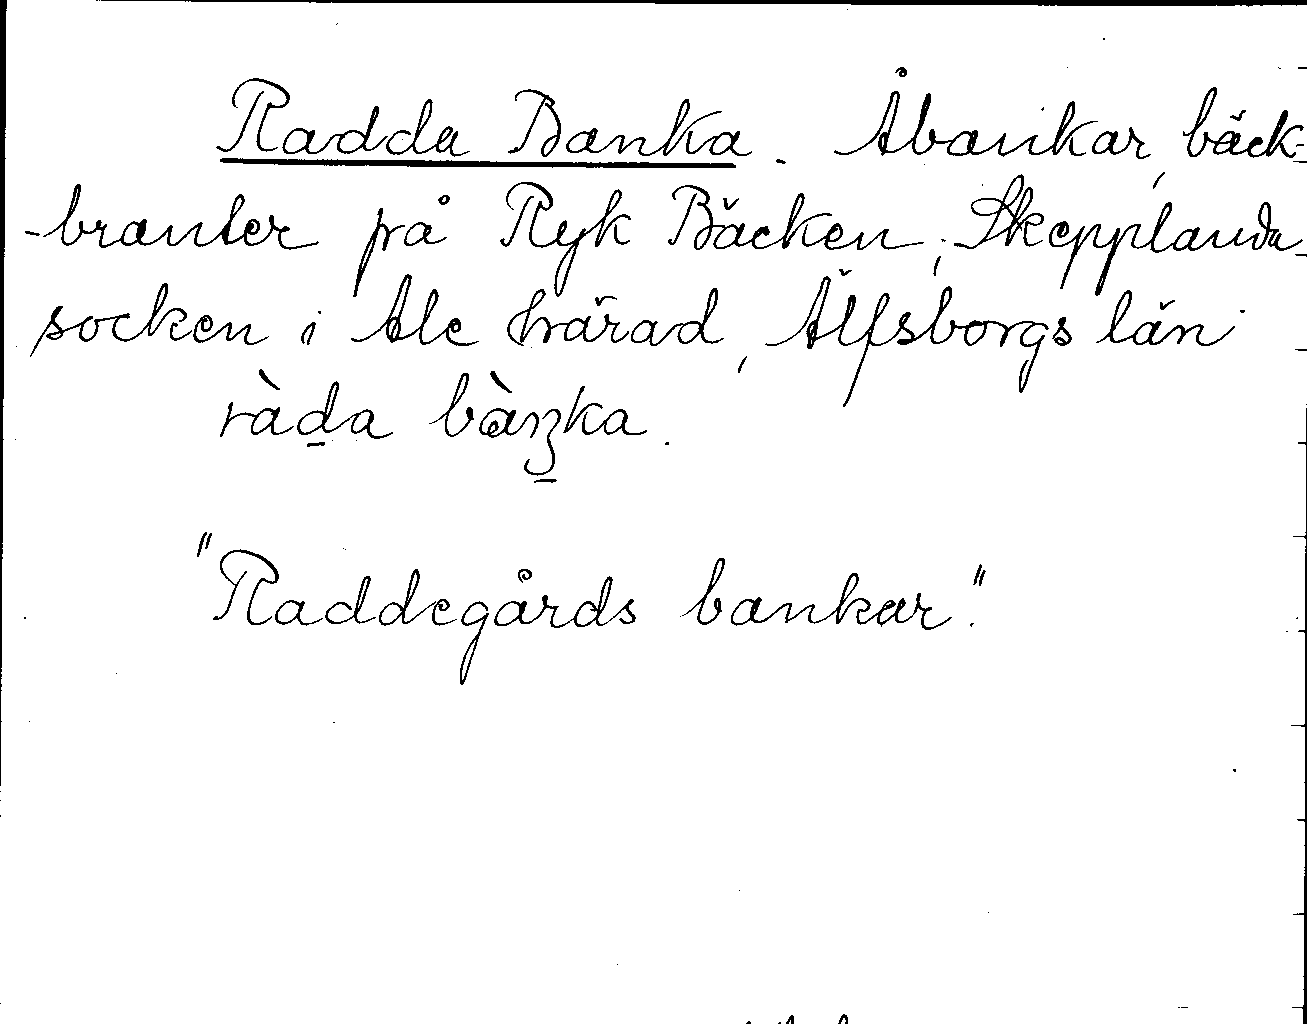 Radda Banka. Åbankar, bäck-
-branter på Ryk Bäcken, Skepplanda
socken i Ale härad, Älfsborgs län
ràd̲a bàŋ̲ka.
"Raddegårds bankar."